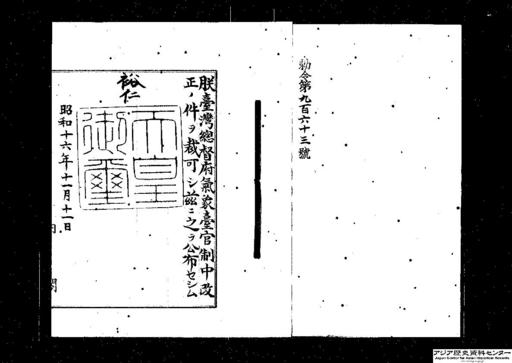 勅令第九百六十三號
朕臺灣總督府氣象臺官制中改
正ノ件ヲ裁可シ茲ニ之ヲ公布セシム
裕仁
天皇
御璽
昭和十六年十一月十一日
内閣
アジア歴史資料センター
Japan Center for Asian Historical Records